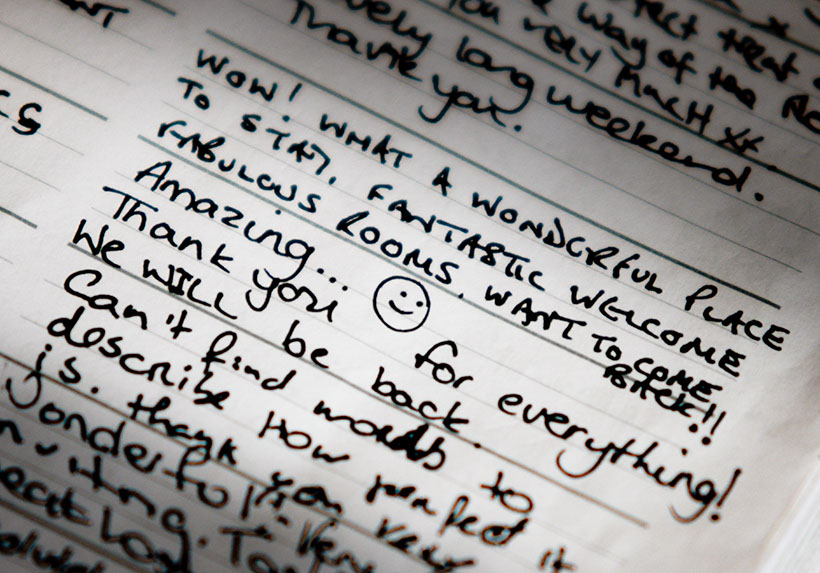 NT
CS
rfect treat
way of the
you very much xx
lovely long weekend.
Thank you.
WOW! WHAT A WONDERFUL PLACE
TO STAY. FANTASTIC WELCOME
FABULOUS ROOMS. WANT TO COME
BACK!!
Amazing... ☺ for everything!
Thank you
We WILL be back.
Can't find words to
describe how perfect it
is. thank you very
wonderful. very